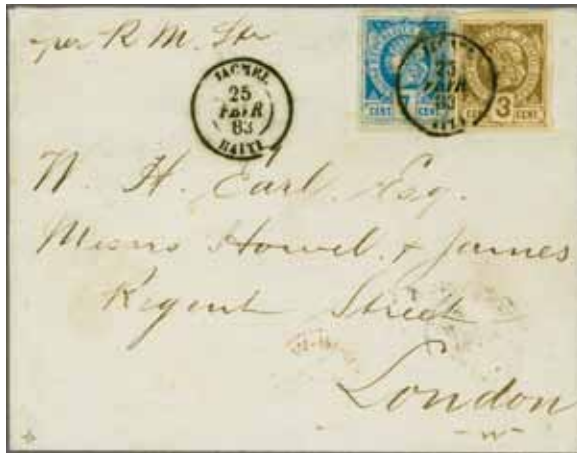 per R. M. Str
JACMEL
25
FEVR
83
HAITI
JACMEL
25
FEVR
83
HAITI
CENT. 7 CENT.
CENT. 3 CENT.
W. H. Earl. Esq.
Messrs Howel. & James
Regent Street
London
W